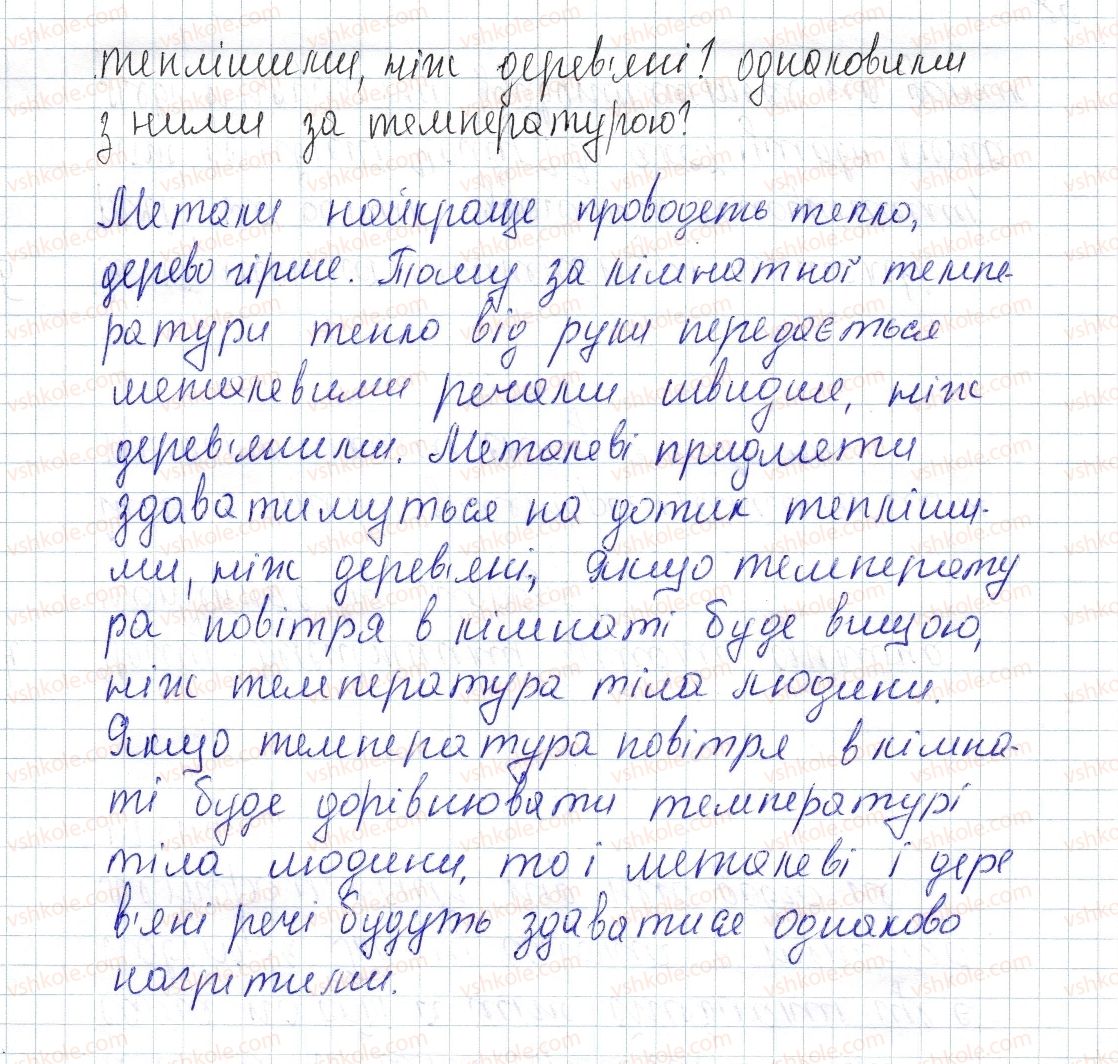 теплішими, ніж дерев'яні? однаковими
з ними за температурою?
Метали найкраще проводеть тепло,
дерево гірше. Тому за кімнатної темпе-
ратури тепло від руки передається
металевими речами швидше, ніж
дерев'яними. Металеві придмети
здаватимуться на дотик тепліши-
ми, ніж дерев'яні, Якщо температу
ра повітря в кімнаті буде вищою,
ніж температура тіла людини.
Якщо температура повітря в кімна-
ті буде дорівнювати температурі
тіла людини, то і металеві і дере
в'яні речі будуть здаватися однаково
нагрітими.